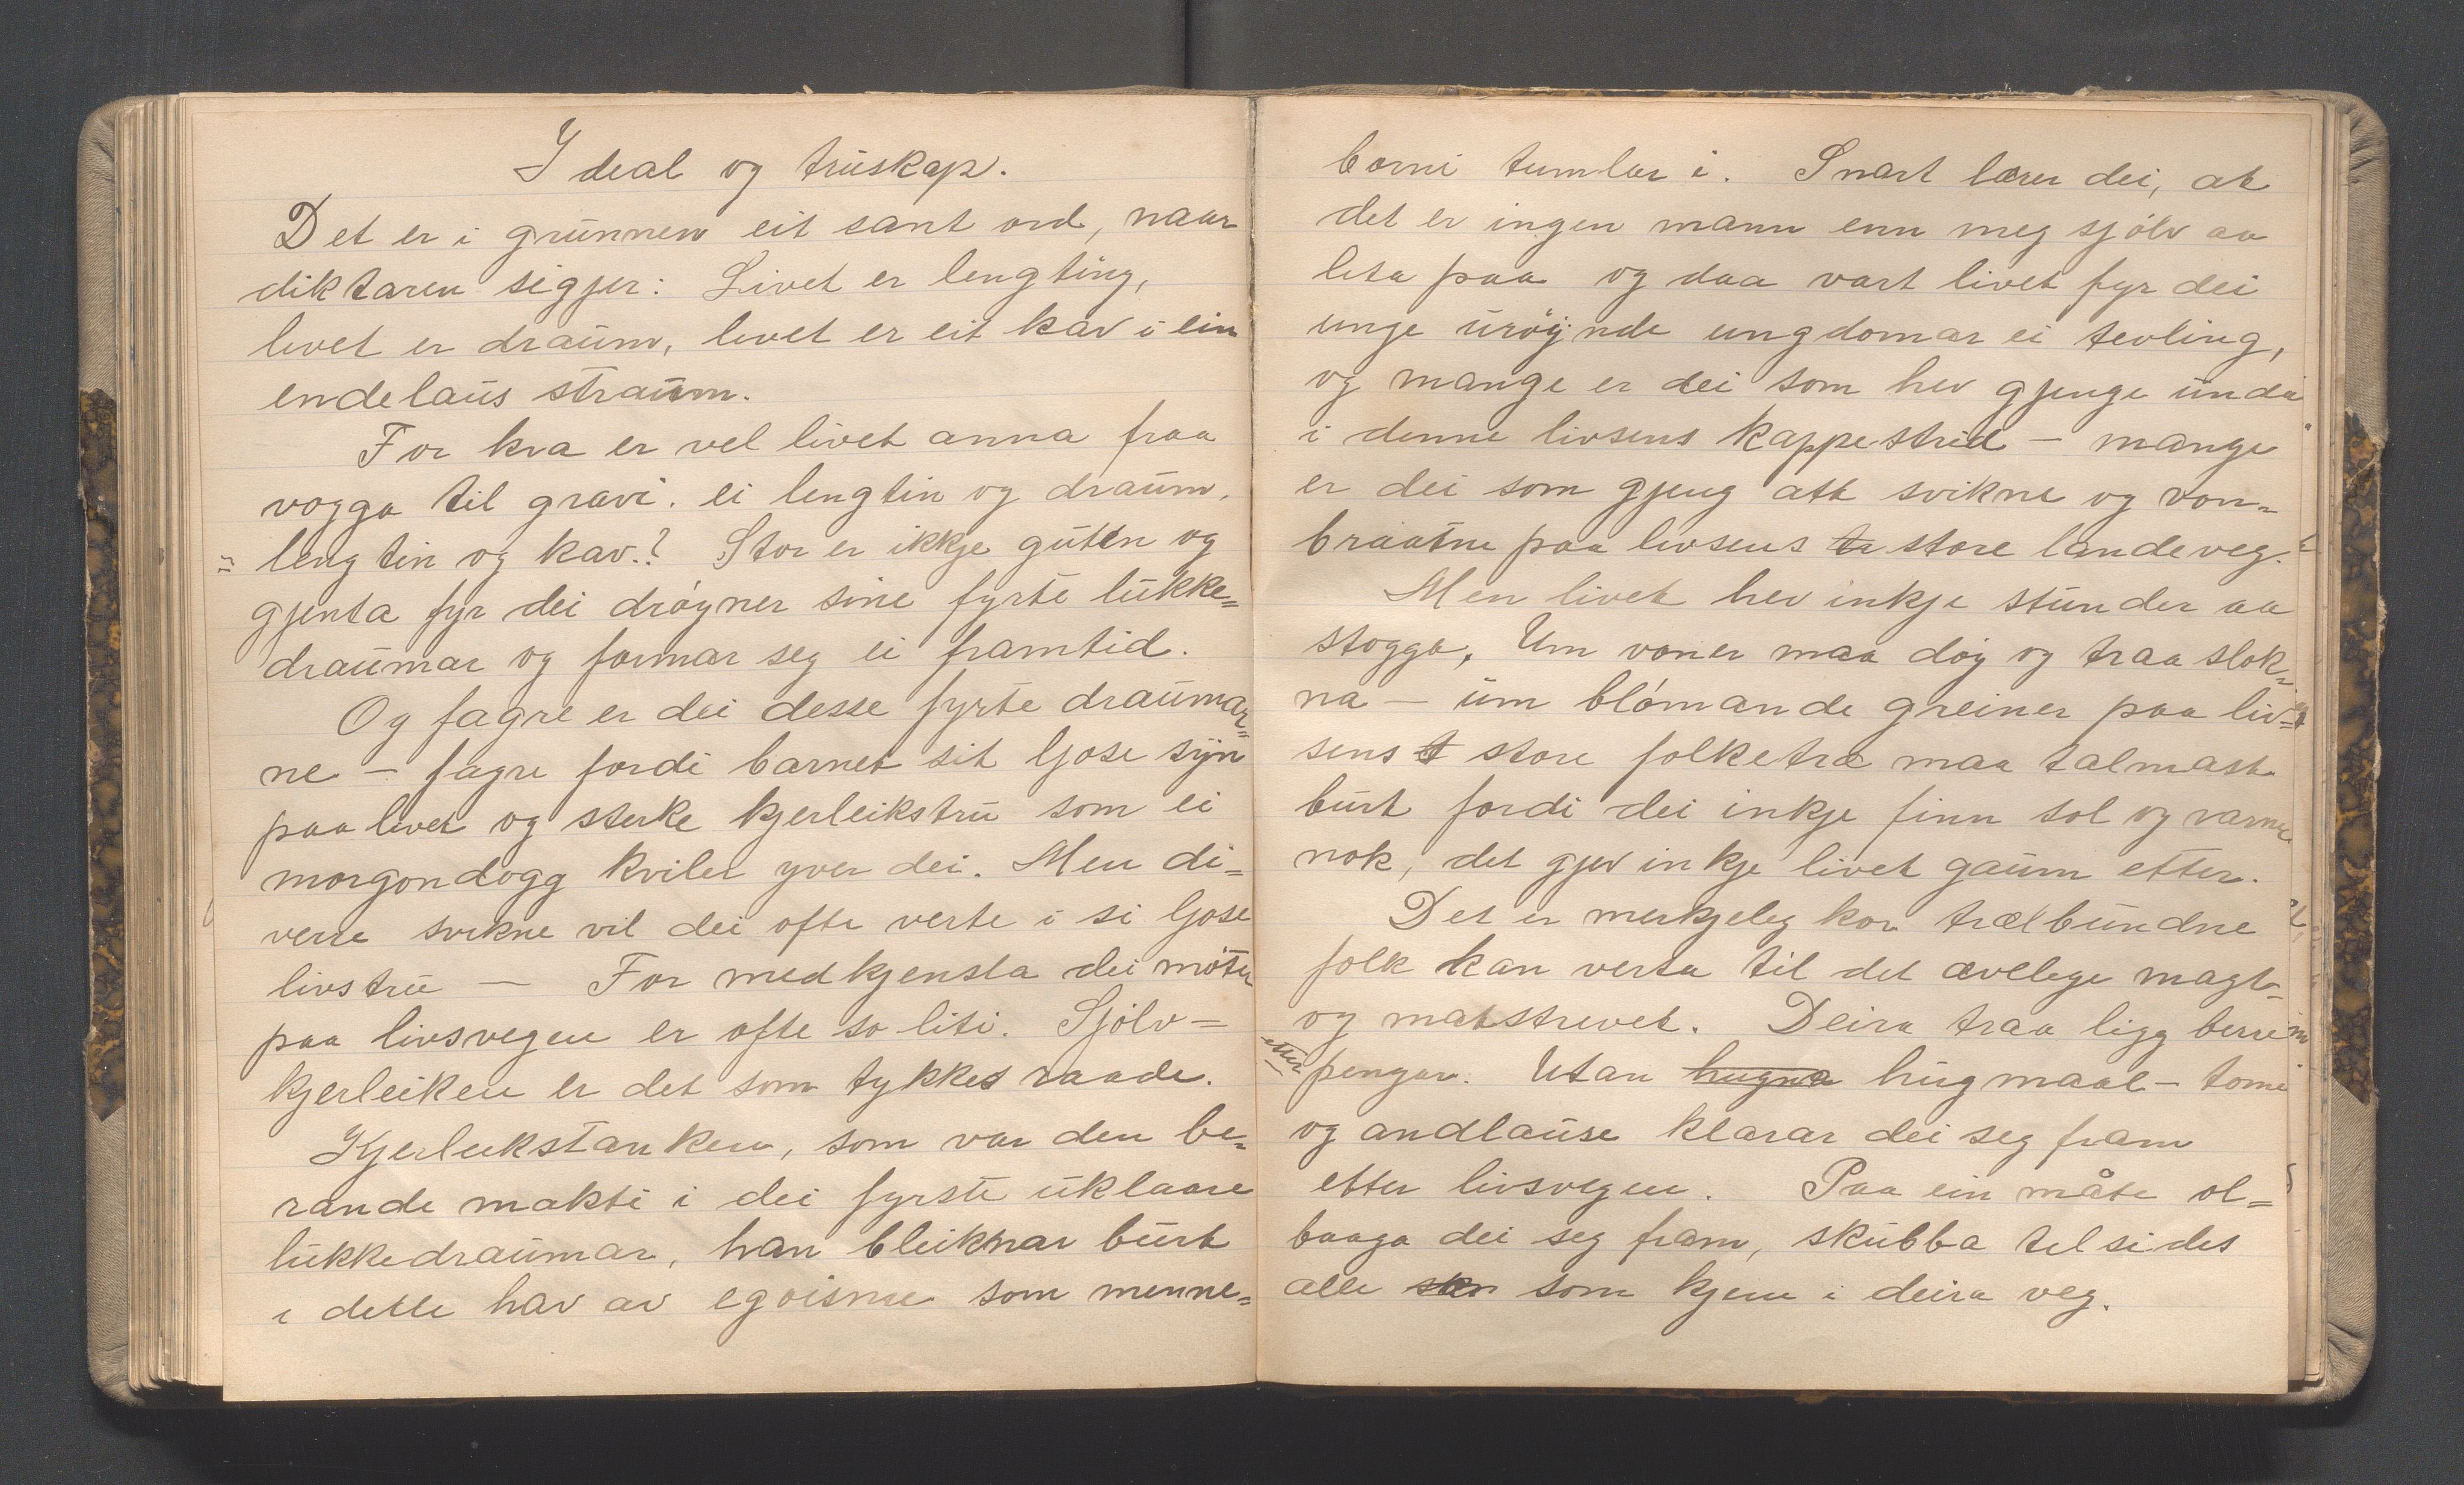 Ideal og truskap.
Det er i grunnen eit sant ord, naar
diktaren sigjer: Livet er lengting,
livet er draum, livet er eit kav i ein
endelaus straum.
For kva er vel livet anna fraa
vogga til gravi. ei lengtin og draum,
lengtin og kav.? Stor er ikkje guten og
gjenta fyr dei drøymer sine fyrte lukke=
draumar og formar seg ei framtid.
Og fagre er dei desse fyrte draumar=
ne – fagre fordi barnet sit ljose syn
paa livet og sterke kjerleikstru som ei
morgondogg kviler yver dei. Men di=
verre svikne vil dei ofte verte i si ljose
livstru — For medkjensla dei møter
paa livsvegen er ofte so liti. Sjølv=
kjerleiken er det som tykkes raade.
Kjerleikstanken, som var den be=
rande makti i dei fyrste uklaare
lukkedraumar, han bleiknar burt
i dette hav av egoisme som menne=
borni tumlar i. Snart lærer dei, at
det er ingen mann enn meg sjølv aa
lita paa og daa vart livet fyr dei
unge urøynde ungdomar ei tevling,
og mange er dei som hev gjenge undi
i denne livsens kappestrid – mange
er dei som gjeng att svikne og von=
braatne paa livsens store landeveg.
Men livet hev inkje stunder aa
stogga. Um voner maa døy og traa slok=
na – um blømande greiner paa liv=
sens store folketre maa talmast
burt fordi dei inkje finn sol og varme
nok, det gjev inkje livet gaum etter.
Det er merkjeleg kor trælbundne
folk kan verta til det ævelege magt=
og matstrevet. Deira traa ligg berre
etter pengar. Utan hugna hugmaal – tome
og andlause klarar dei seg fram
etter livsvegen. Paa ein måte ol=
baaga dei seg fram, skubba til sides
alle som kjem i deira veg.